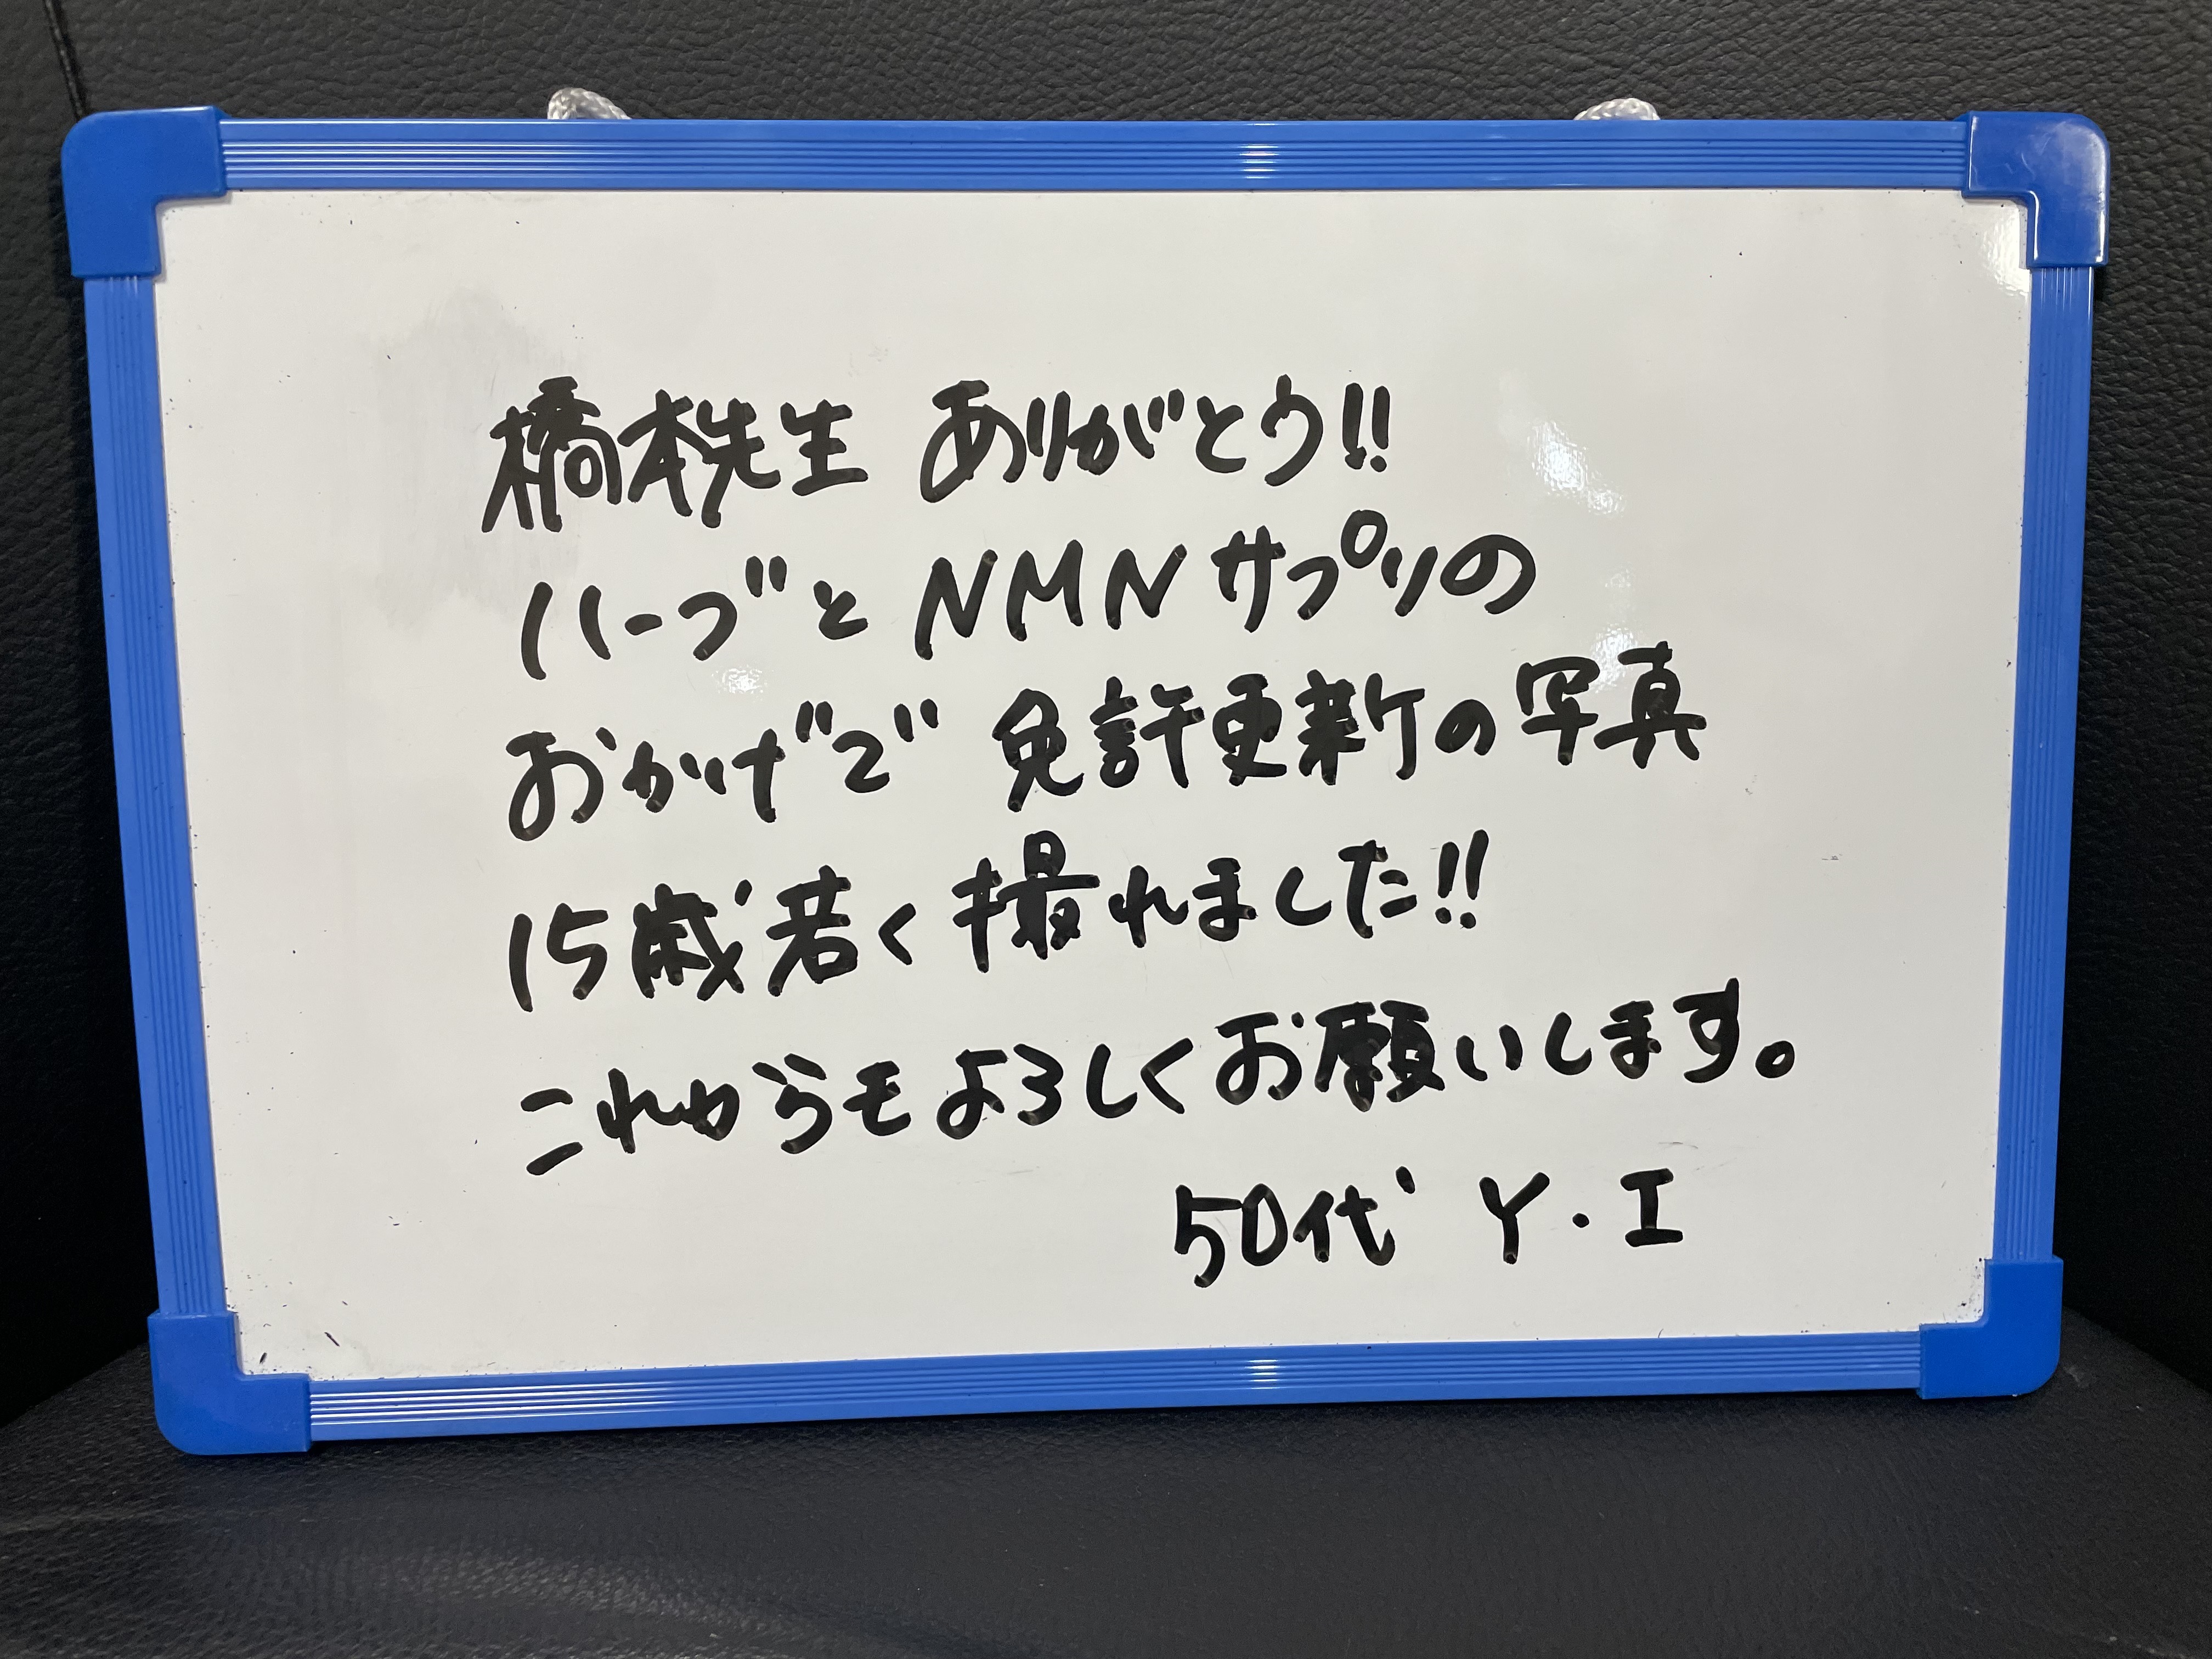 橋本先生 ありがとう!!
ハーブと NMNサプリの
おかげで 免許更新の写真
15歳若く撮れました!!
これからもよろしくお願いします。
50代 Y・I